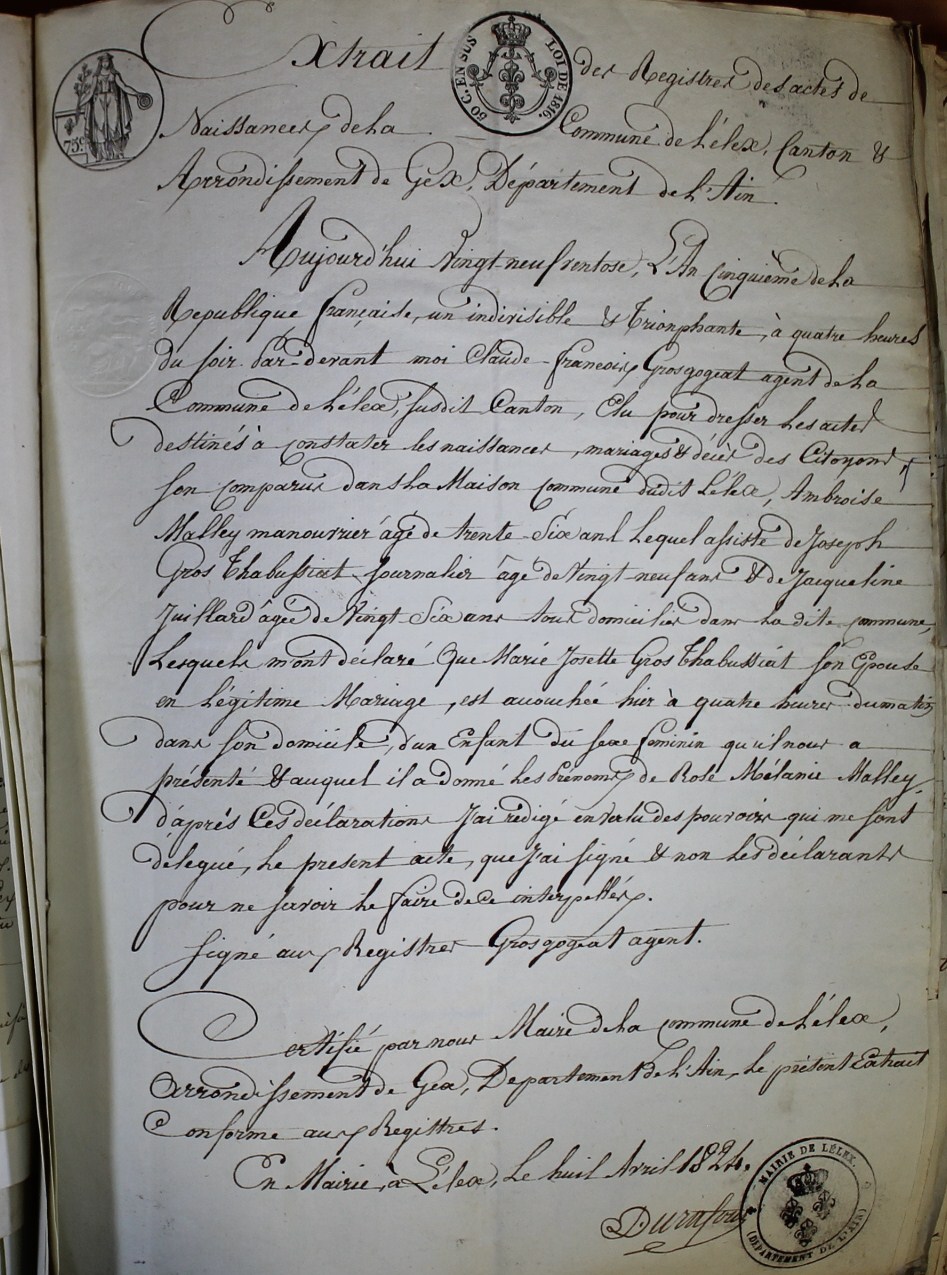 Extrait des Registres des actes de
50 C. EN SUS LOI DE 1816.
75c
Naissances de la Commune de Lélex, Canton &
Arrondissement de Gex, Département de l'Ain.
Aujourd'hui Vingt-neuf Ventose, L'An Cinquième de la
Republique française, un indivisible & Trionphante, à quatre heures
du soir Par-devant moi Claude-francois Grosgogeat agent de la
Commune de Lélex, susdit Canton, Elu pour dresser Les actes
destinés à constater les naissances, mariages & décès des Citoyens,
son comparus dans La Maison Commune dudit Lélex, Ambroise
Malley manouvrier âgé de trente-Six ans Lequel assisté de Joseph
Gros Thabussiat, Journalier âgé de Vingt neuf ans & de Jacqueline
Juillard âgée de Vingt Six ans tous domiciliés dans La dite commune,
Lesquels m'ont déclaré Que Marie Josette Gros Thabussiat son Epouse
en Légitime Mariage, est accouchée hier à quatre heures du matin
dans son domicile, d'un Enfant du sexe féminin qu'il nous a
présenté & auquel il a donné Les Prénoms de Rose Mélanie Malley,
d'après Ces déclarations J'ai rédigé en vertu des pouvoirs qui me sont
délegué, Le present acte, que J'ai signé & non Les déclarants
pour ne savoir Le faire de ce interpellés.
Signé aux Registres Grosgogeat agent.
Certifié par nous Maire de La commune de Lélex,
Arrondissement de Gex, Departement de L'Ain, Le présent Extrait
Conforme aux Registres.
En Mairie, à Lélex, Le huit Avril 1824.
Durafour
MAIRIE DE LÉLEX.
(DÉPARTEMENT DE L'AIN)